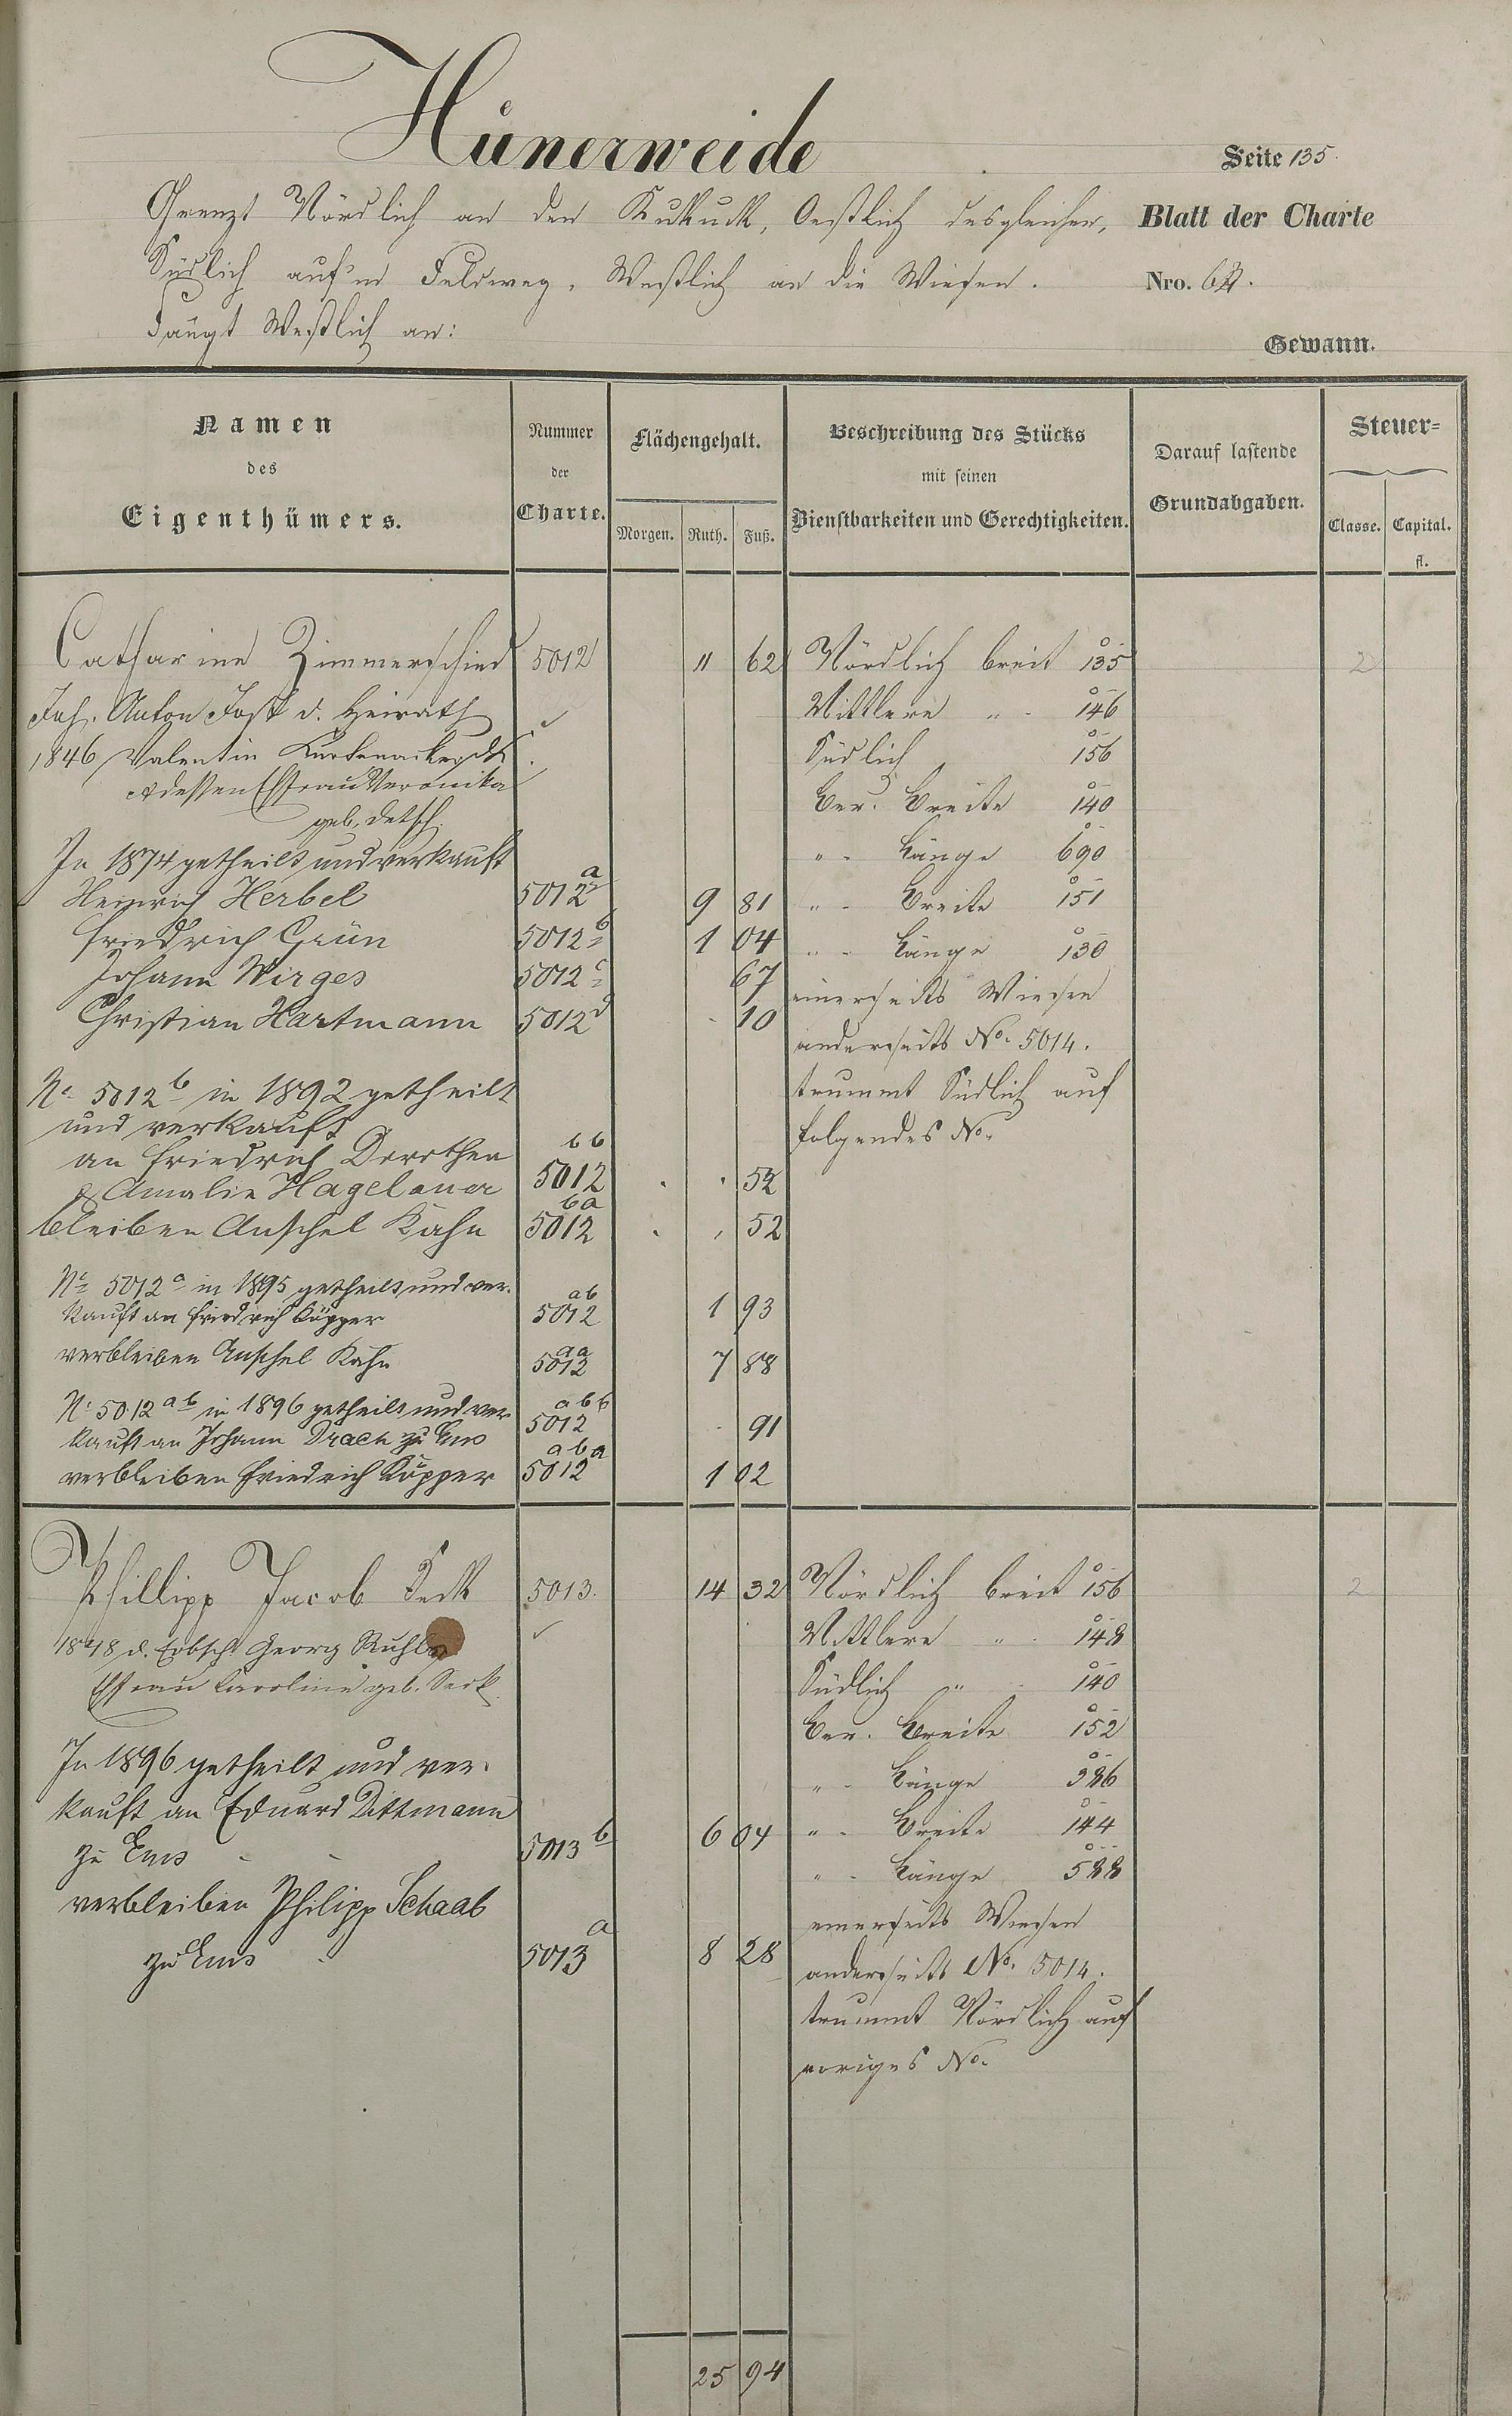 Hünerweide
Seite 135.
Grenzt Nördlich an den Kukuck, Oestlich desgleichen,
Blatt der Charte
Südlich auf'm Feldweg, Westlich an die Wiesen.
Nro. 62.
Fängt Westlich an:
Gewann.
Namen des Eigenthümers.
Nummer der Charte.
Flächengehalt.
Morgen. Ruth. Fuß.
Beschreibung des Stücks mit seinen Dienstbarkeiten und Gerechtigkeiten.
Darauf lastende Grundabgaben.
Steuer=
Classe. Capital.
fl.
Catharine Zimmerschied 5012 11 62 Nördlich breit 135 2
Joh. Anton Jost d. Heirath Mittlere " 146
1846 Valentin Südlich 156
& dessen Ehfrau Veronika Ver. Breite 140
geb. Detsch.
In 1874 getheilt und verkauft " Länge 690
Heinrich Herbel 5012 a 9 81 " Breite 151
Friedrich Grün 5012 b 1 04 " Länge 130
Johann Wirges 5012 c 67 einerseits Wiesen
Christian Hartmann 5012 d 10 anderseits No. 5014.
No 5012 b in 1892 getheilt trummt Südlich auf
und verkauft folgendes No.
an Friedrich Dorothea
& Amalie Hagelauer 5012 bb 52
bleiben Anschel Kahn 5012 ba 52
No 5012 a in 1895 getheilt und ver-
kauft an Friedrich Küpper 5012 ab 1 93
verbleiben Anschel Kahn 5012 aa 7 88
No 5012 ab in 1896 getheilt und ver-
kauft an Johann Drach zu Ems 5012 abb 91
verbleiben Friedrich Küpper 5012 aba 1 02
Phillipp Jacob 5013. 14 32 Nördlich breit 156 2
1848 d. Erbsch. Georg Mittlere " 148
Ehfrau Caroline geb. Südlich " 140
Ver. Breite 152
In 1896 getheilt und ver- " Länge 386
kauft an Eduard Dittmann " Breite 144
zu Ems 5013 b 6 04 " Länge 588
verbleiben Philipp Schaab einerseits Wiesen
zu Ems 5013 a 8 28 anderseits No. 5014.
trummt Nördlich auf
voriges No.
25 94